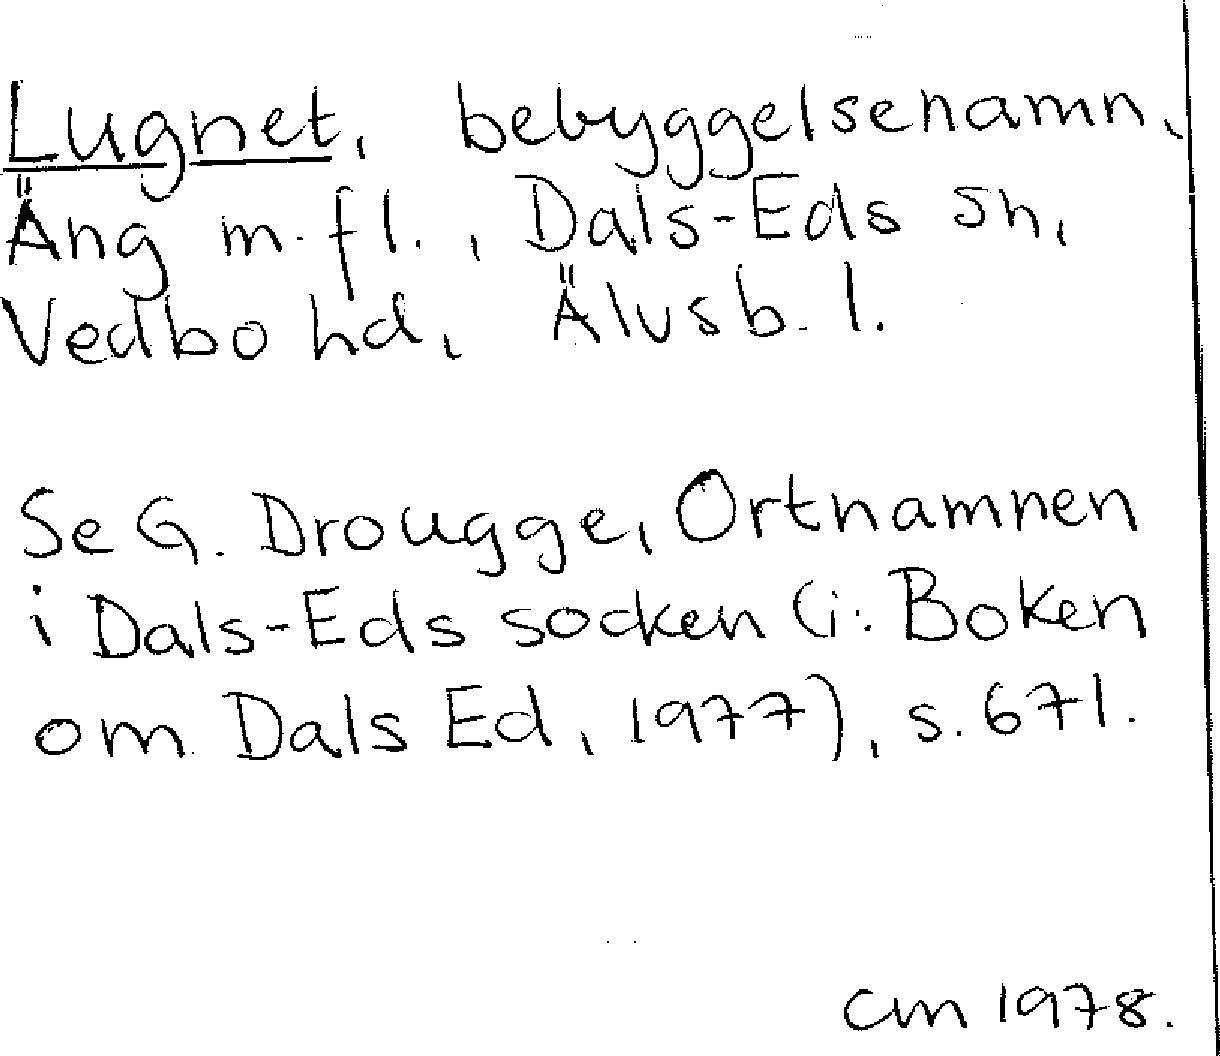 Lugnet, bebyggelsenamn,
Äng m.fl., Dals-Eds sn,
Vedbo hd, Älvsb.l.
Se G. Drougge, Ortnamnen
i Dals-Eds socken (i: Boken
om Dals Ed, 1977), s. 671.
CM 1978.